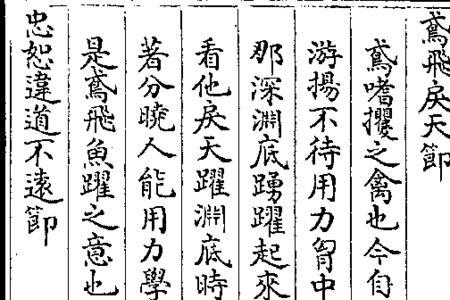 鳶飛戾天節
鳶嗜攫之禽也今自
游揚不待用力胷中
那深淵底踴躍起來
看他戾天躍淵底時
著分曉人能用力學
是鳶飛魚躍之意也
忠恕違道不遠節